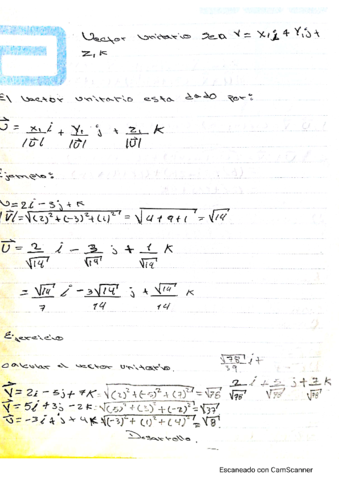 Vector Unitario sea V = X₁i + Y₁j +
Z₁K
El vector unitario esta dado por:
U⃗ = x₁/|U⃗| i + Y₁/|U⃗| j + Z₁/|U⃗| K
Ejemplo:
V = 2i - 3j + K
|V| = √(2)² + (-3)² + (1)² = √4 + 9 + 1 = √14
U⃗ = 2/√14 i - 3/√14 j + 1/√14 K
= √14/7 i - 3√14/14 j + √14/14 K
Ejercicio
Calcular el vector unitario.
√78/39 i +
2/√78 i + 5/√78 j + 7/√78 K
V⃗ = 2i - 5j + 7K = √(2)² + (-5)² + (7)² = √78
V⃗ = 5i + 3j - 2K = √(5)² + (3)² + (-2)² = √37
V⃗ = -3i + j + 4K = √(-3)² + (1)² + (4)² =
Desarrollo.
Escaneado con CamScanner